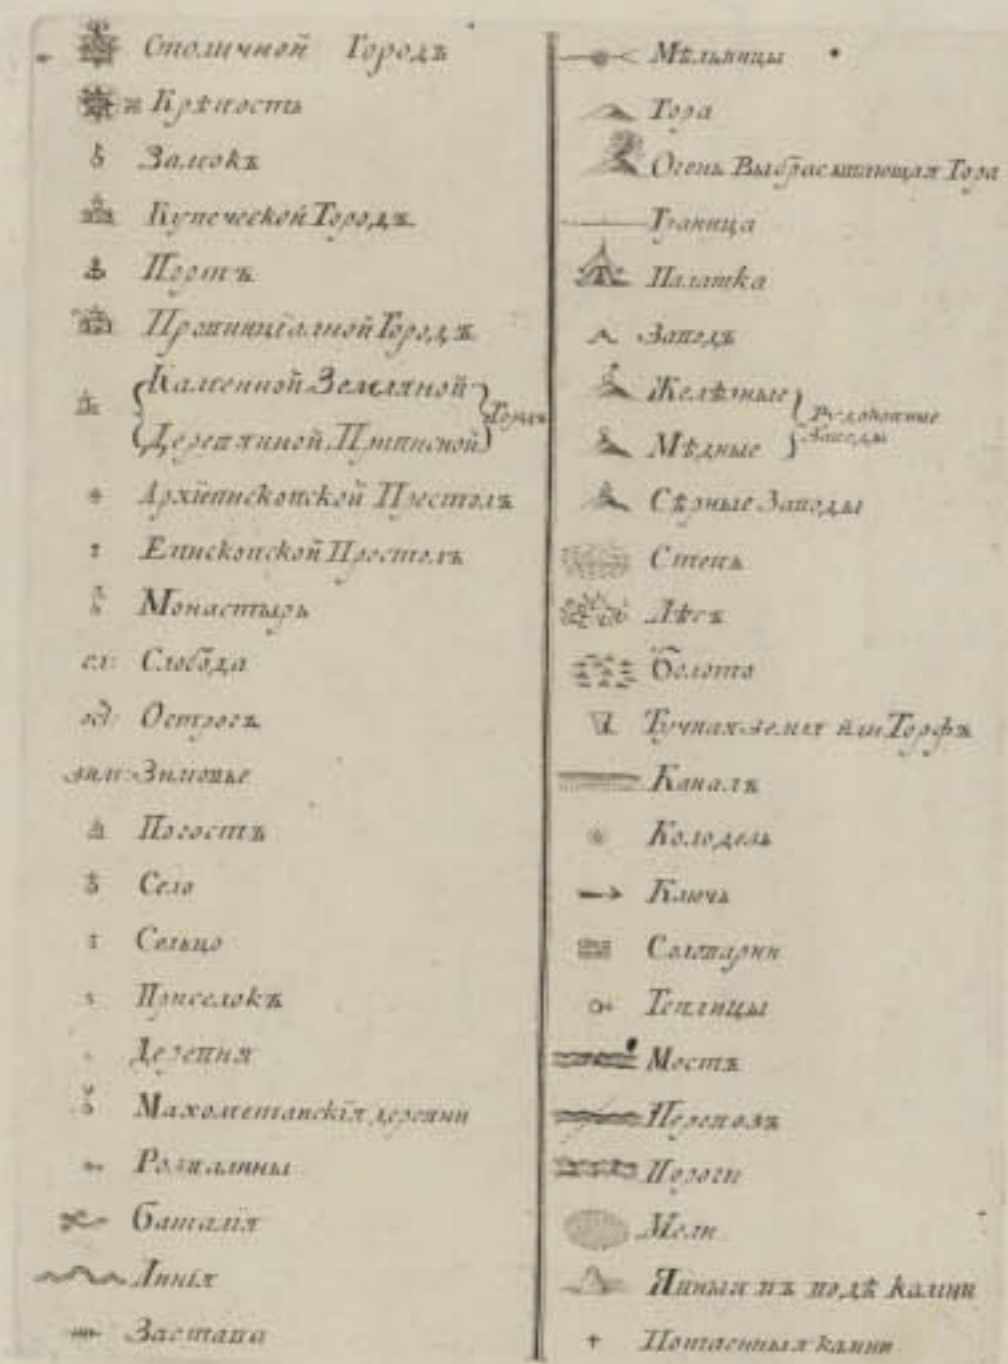 Столичной Городъ
Крѣпость
Замокъ
Купеческой Городъ
Портъ
Провинціалной Городъ
Каменной Земляной
Деревяиной Приписной
Городъ
Архіепископской Престолъ
Епископской Простолъ
Монастырь
сл: Слобода
Острогъ
зим: Зимовье
Погостъ
Село
Сельцо
Приселокъ
Деревня
Махометанскія деревни
Розвалины
Баталія
Линія
Застава
Мѣльницы
Гора
Огень Выбрасывающая Гора
Граница
Палатка
Заводъ
Желѣзные
Мѣдные
Рудокопные
Заводы
Сѣрные Заводы
Степь
Лѣсъ
Болото
Тучная земля или Торфъ
Каналъ
Колодезь
Ключь
Соловарни
Теплицы
Мостъ
Перевозъ
Пороги
Мели
Явныя въ водѣ камни
Потаенныя камни